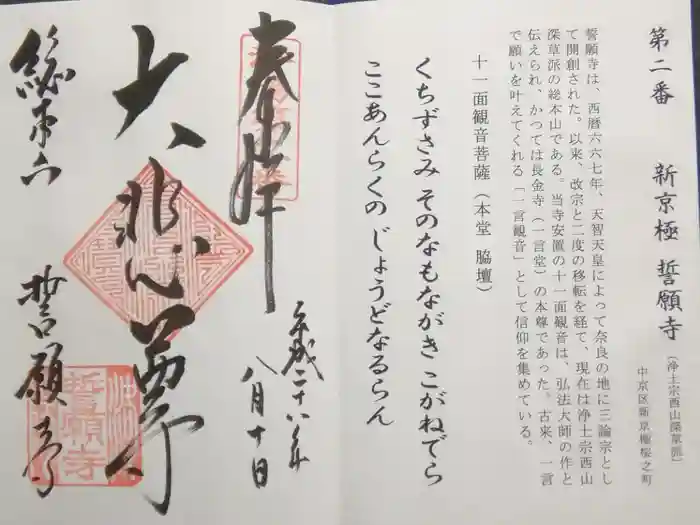 第二番 新京極 誓願寺〔浄土宗西山深草派〕
中京区新京極桜之町
誓願寺は、西暦六六七年、天智天皇によって奈良の地に三論宗とし
て開創された。以来、改宗と二度の移転を経て、現在は浄土宗西山
深草派の総本山である。当寺安置の十一面観音は、弘法大師の作と
伝えられ、かつては長金寺(一言堂)の本尊であった。古来、一言
で願いを叶えてくれる「一言観音」として信仰を集めている。
十一面観音菩薩(本堂 脇壇)
くちずさみ そのなもながき こがねでら
ここあんらくの じょうどなるらん
奉拝
平成二十八年
八月十日
大悲尊
総本山 誓願寺
誓願寺